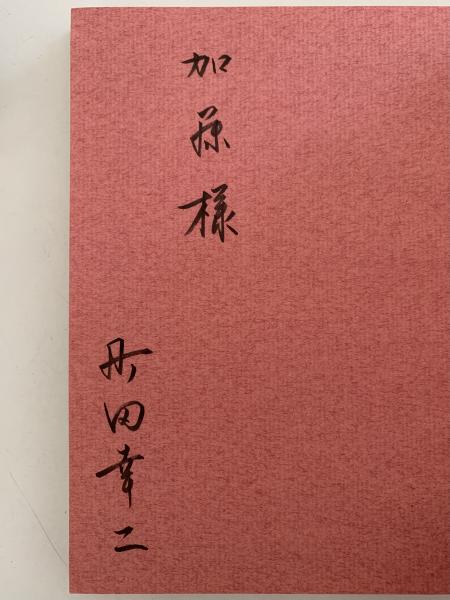 加藤様
田幸二